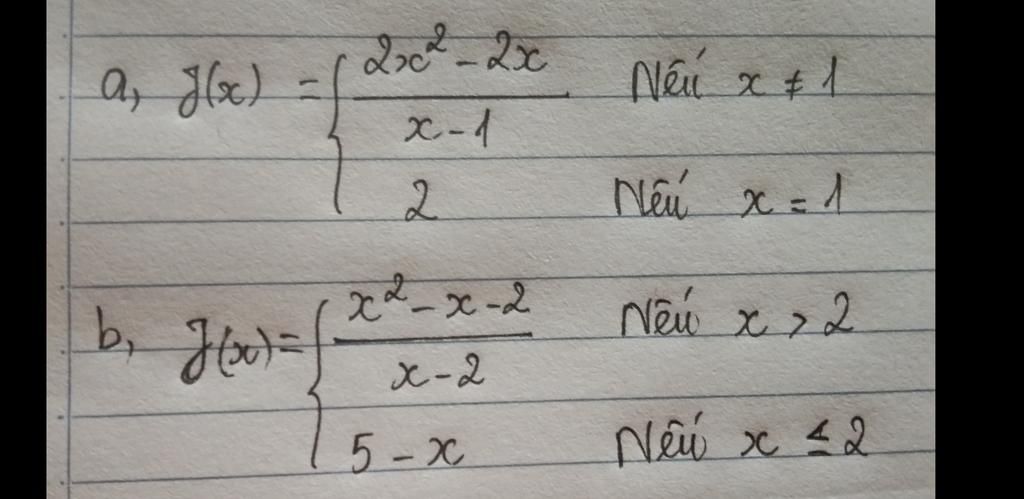 a, f(x) = { (2x² - 2x)/(x - 1) Nếu x ≠ 1
2 Nếu x = 1
b, f(x) = { (x² - x - 2)/(x - 2) Nếu x > 2
5 - x Nếu x ≤ 2